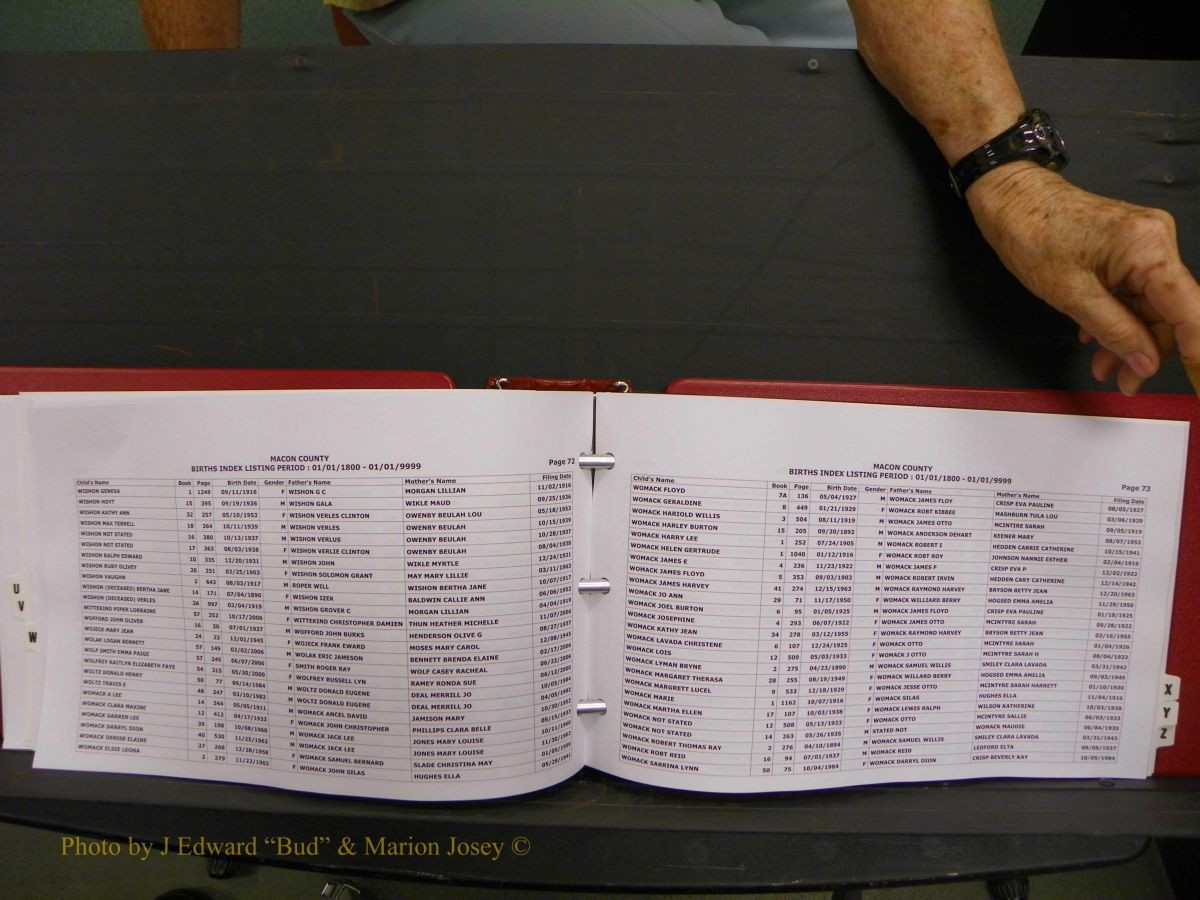 MACON COUNTY
BIRTHS INDEX LISTING PERIOD : 01/01/1800 - 01/01/9999
Page 72
Child's Name Book Page Birth Date Gender Father's Name Mother's Name Filing Date
WISHON GENEVA 1 1249 09/11/1916 F WISHON G C MORGAN LILLIAN 11/02/1916
WISHON HOYT 15 395 09/19/1936 M WISHON GALA WIKLE MAUD 09/25/1936
WISHON KATHY ANN 32 257 05/10/1953 F WISHON VERLES CLINTON OWENBY BEULAH LOU 05/18/1953
WISHON MAX TERRELL 18 364 10/11/1939 M WISHON VERLES OWENBY BEULAH 10/15/1939
WISHON NOT STATED 16 380 10/13/1937 M WISHON VERLUS OWENBY BEULAH 10/28/1937
WISHON NOT STATED 17 363 08/03/1938 F WISHON VERLIE CLINTON OWENBY BEULAH 08/04/1938
WISHON RALPH EDWARD 10 335 12/20/1931 M WISHON JOHN WIKLE MYRTLE 12/24/1931
WISHON RUBY OLIVEY 20 251 02/25/1903 F WISHON SOLOMON GRANT MAY MARY LILLIE 03/11/1963
WISHON VAUGHN 2 643 08/03/1917 M ROPER WILL WISHON BERTHA JANE 10/07/1917
WISHON (DECEASED) BERTHA JANE 14 171 07/04/1890 F WISHON IZEK BALDWIN CALLIE ANN 06/06/1952
WISHON (DECEASED) VERLES 3A 997 03/04/1919 M WISHON GROVER C MORGAN LILLIAN 04/04/1919
WITTEKIND PIPER LORRAINE 57 352 10/17/2006 F WITTEKIND CHRISTOPHER DAMIEN THUN HEATHER MICHELLE 11/07/2006
WOFFORD JOHN OLIVER 16 20 07/01/1937 M WOFFORD JOHN BURKS HENDERSON OLIVE G 08/27/1937
WOJECK MARY JEAN 24 23 12/01/1945 F WOJECK FRANK EWARD MOSES MARY CAROL 12/08/1945
WOLAK LOGAN BENNETT 57 149 02/02/2006 M WOLAK ERIC JAMESON BENNETT BRENDA ELAINE 02/17/2006
WOLF SMITH EMMA PAIGE 57 245 06/07/2006 F SMITH ROGER RAY WOLF CASEY RACHEAL 06/22/2006
WOLFREY KAITLYN ELIZABETH FAYE 54 315 05/30/2000 F WOLFREY RUSSELL LYN RAMEY RONDA SUE 06/12/2000
WOLTZ DONALD HENRY 50 77 09/14/1984 M WOLTZ DONALD EUGENE DEAL MERRILL JO 10/05/1984
WOLTZ TRAVIS E 48 247 03/10/1982 M WOLTZ DONALD EUGENE DEAL MERRILL JO 04/05/1982
WOMACK A LEE 14 344 05/05/1911 M WOMACK ANCEL DAVID JAMISON MARY 10/30/1957
WOMACK CLARA MAXINE 12 412 04/17/1933 F WOMACK JOHN CHRISTOPHER PHILLIPS CLARA BELLE 05/15/1933
WOMACK DARREN LEE 39 198 10/08/1960 M WOMACK JACK LEE JONES MARY LOUISE 10/11/1960
WOMACK DARRYL DION 40 530 11/25/1962 M WOMACK JACK LEE JONES MARY LOUISE 11/30/1962
WOMACK DENISE ELAINE 37 268 12/28/1958 F WOMACK SAMUEL BERNARD SLADE CHRISTINA MAY 01/05/1959
WOMACK ELSIE LEONA 2 279 11/22/1902 F WOMACK JOHN SILAS HUGHES ELLA 05/29/1941
MACON COUNTY
BIRTHS INDEX LISTING PERIOD : 01/01/1800 - 01/01/9999
Page 73
Child's Name Book Page Birth Date Gender Father's Name Mother's Name Filing Date
WOMACK FLOYD 7A 136 05/04/1927 M WOMACK JAMES FLOY CRISP EVA PAULINE 08/05/1927
WOMACK GERALDINE 8 449 01/21/1929 F WOMACK ROBT KIBBEE MASHBURN TULA LOU 03/06/1929
WOMACK HARIOLD WILLIS 3 504 08/11/1919 M WOMACK JAMES OTTO MCINTIRE SARAH 09/05/1919
WOMACK HARLEY BURTON 15 205 09/30/1892 M WOMACK ANDERSON DEHART KEENER MARY 08/07/1953
WOMACK HARRY LEE 1 252 07/24/1905 M WOMACK ROBERT I HEDDEN CARRIE CATHERINE 10/15/1941
WOMACK HELEN GERTRUDE 1 1040 01/12/1916 F WOMACK ROBT ROY JOHNSON NANNIE ESTHER 02/04/1916
WOMACK JAMES E 4 236 11/23/1922 M WOMACK JAMES F CRISP EVA P 12/02/1922
WOMACK JAMES FLOYD 5 353 09/03/1903 M WOMACK ROBERT IRVIN HEDDEN CARY CATHERINE 12/14/1942
WOMACK JAMES HARVEY 41 274 12/15/1963 M WOMACK RAYMOND HARVEY BRYSON BETTY JEAN 12/20/1963
WOMACK JO ANN 29 71 11/17/1950 F WOMACK WILLIARD BERRY HOGSED EMMA AMELIA 11/29/1950
WOMACK JOEL BURTON 6 95 01/05/1925 M WOMACK JAMES FLOYD CRISP EVA PAULINE 01/18/1925
WOMACK JOSEPHINE 4 293 06/07/1922 F WOMACK JAMES OTTO MCINTYRE SARAH 09/28/1922
WOMACK KATHY JEAN 34 278 03/12/1955 F WOMACK RAYMOND HARVEY BRYSON BETTY JEAN 03/16/1955
WOMACK LAVADA CHRISTENE 6 107 12/24/1925 F WOMACK OTTO MCINTYRE SARAH 01/04/1926
WOMACK LOIS 12 509 05/03/1933 F WOMACK J OTTO MCINTYRE SARAH H 08/04/1933
WOMACK LYMAN BRYNE 2 275 04/23/1890 M WOMACK SAMUEL WILLIS SMILEY CLARA LAVADA 03/31/1942
WOMACK MARGARET THERASA 28 255 08/19/1949 F WOMACK WILLARD BERRY HOGSED EMMA AMELIA 09/03/1949
WOMACK MARGRETT LUCEL 9 533 12/18/1929 F WOMACK JESSE OTTO MCINTYRE SARAH HARRETT 01/10/1930
WOMACK MARIE 1 1162 10/07/1916 F WOMACK SILAS HUGHES ELLA 11/04/1916
WOMACK MARTHA ELLEN 17 107 10/03/1938 F WOMACK LEWIS RALPH WILSON KATHERINE 10/03/1938
WOMACK NOT STATED 12 508 05/13/1923 F WOMACK OTTO MCINTYRE SALLIE 06/03/1933
WOMACK NOT STATED 14 263 05/26/1935 M STATED NOT WOMACK MAUDIE 06/04/1935
WOMACK ROBERT THOMAS RAY 2 276 04/10/1894 M WOMACK SAMUEL WILLIS SMILEY CLARA LAVADA 03/31/1942
WOMACK ROBT REID 16 94 07/01/1937 M WOMACK REID LEDFORD ELTA 09/05/1937
WOMACK SABRINA LYNN 50 75 10/04/1984 F WOMACK DARRYL DION CRISP BEVERLY KAY 10/05/1984
U
V
W
X
Y
Z
Photo by J Edward “Bud” & Marion Josey ©